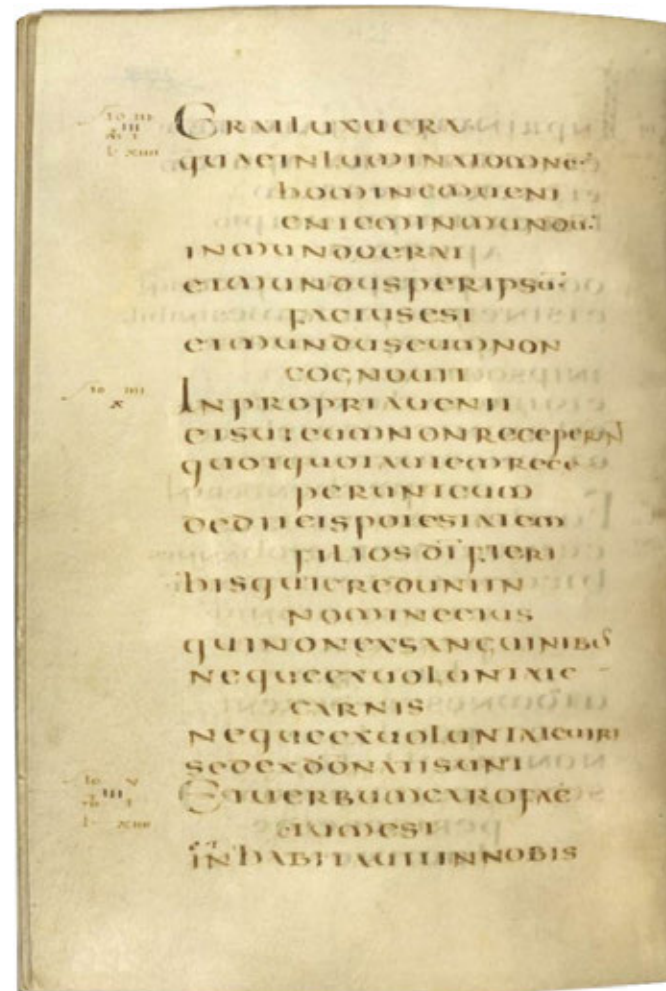 ERATLUXUERA
QUAEINLUMINATOMNE
HOMINEMUENI
ENTEMINMUNDU·
INMUNDOERAT
ETMUNDUSPERIPSU·
FACTUSEST
ETMUNDUSEUMNON
COGNOUIT
INPROPRIAUENIT
ETSUIEUMNONRECEPERUN
QUOTQUOTAUTEMRECE
PERUNTEUM
DEDITEISPOTESTATEM
FILIOSDIFIERI
HISQUICREDUNTIN
NOMINEEIUS
QUINONEXSANGUINIB
NEQUEEXUOLUNTATE
CARNIS
NEQUEEXUOLUNTATEUIRI
SEDEXDONATISUNT
ETUERBUMCAROFAC
TUMEST
INHABITAUITINNOBIS